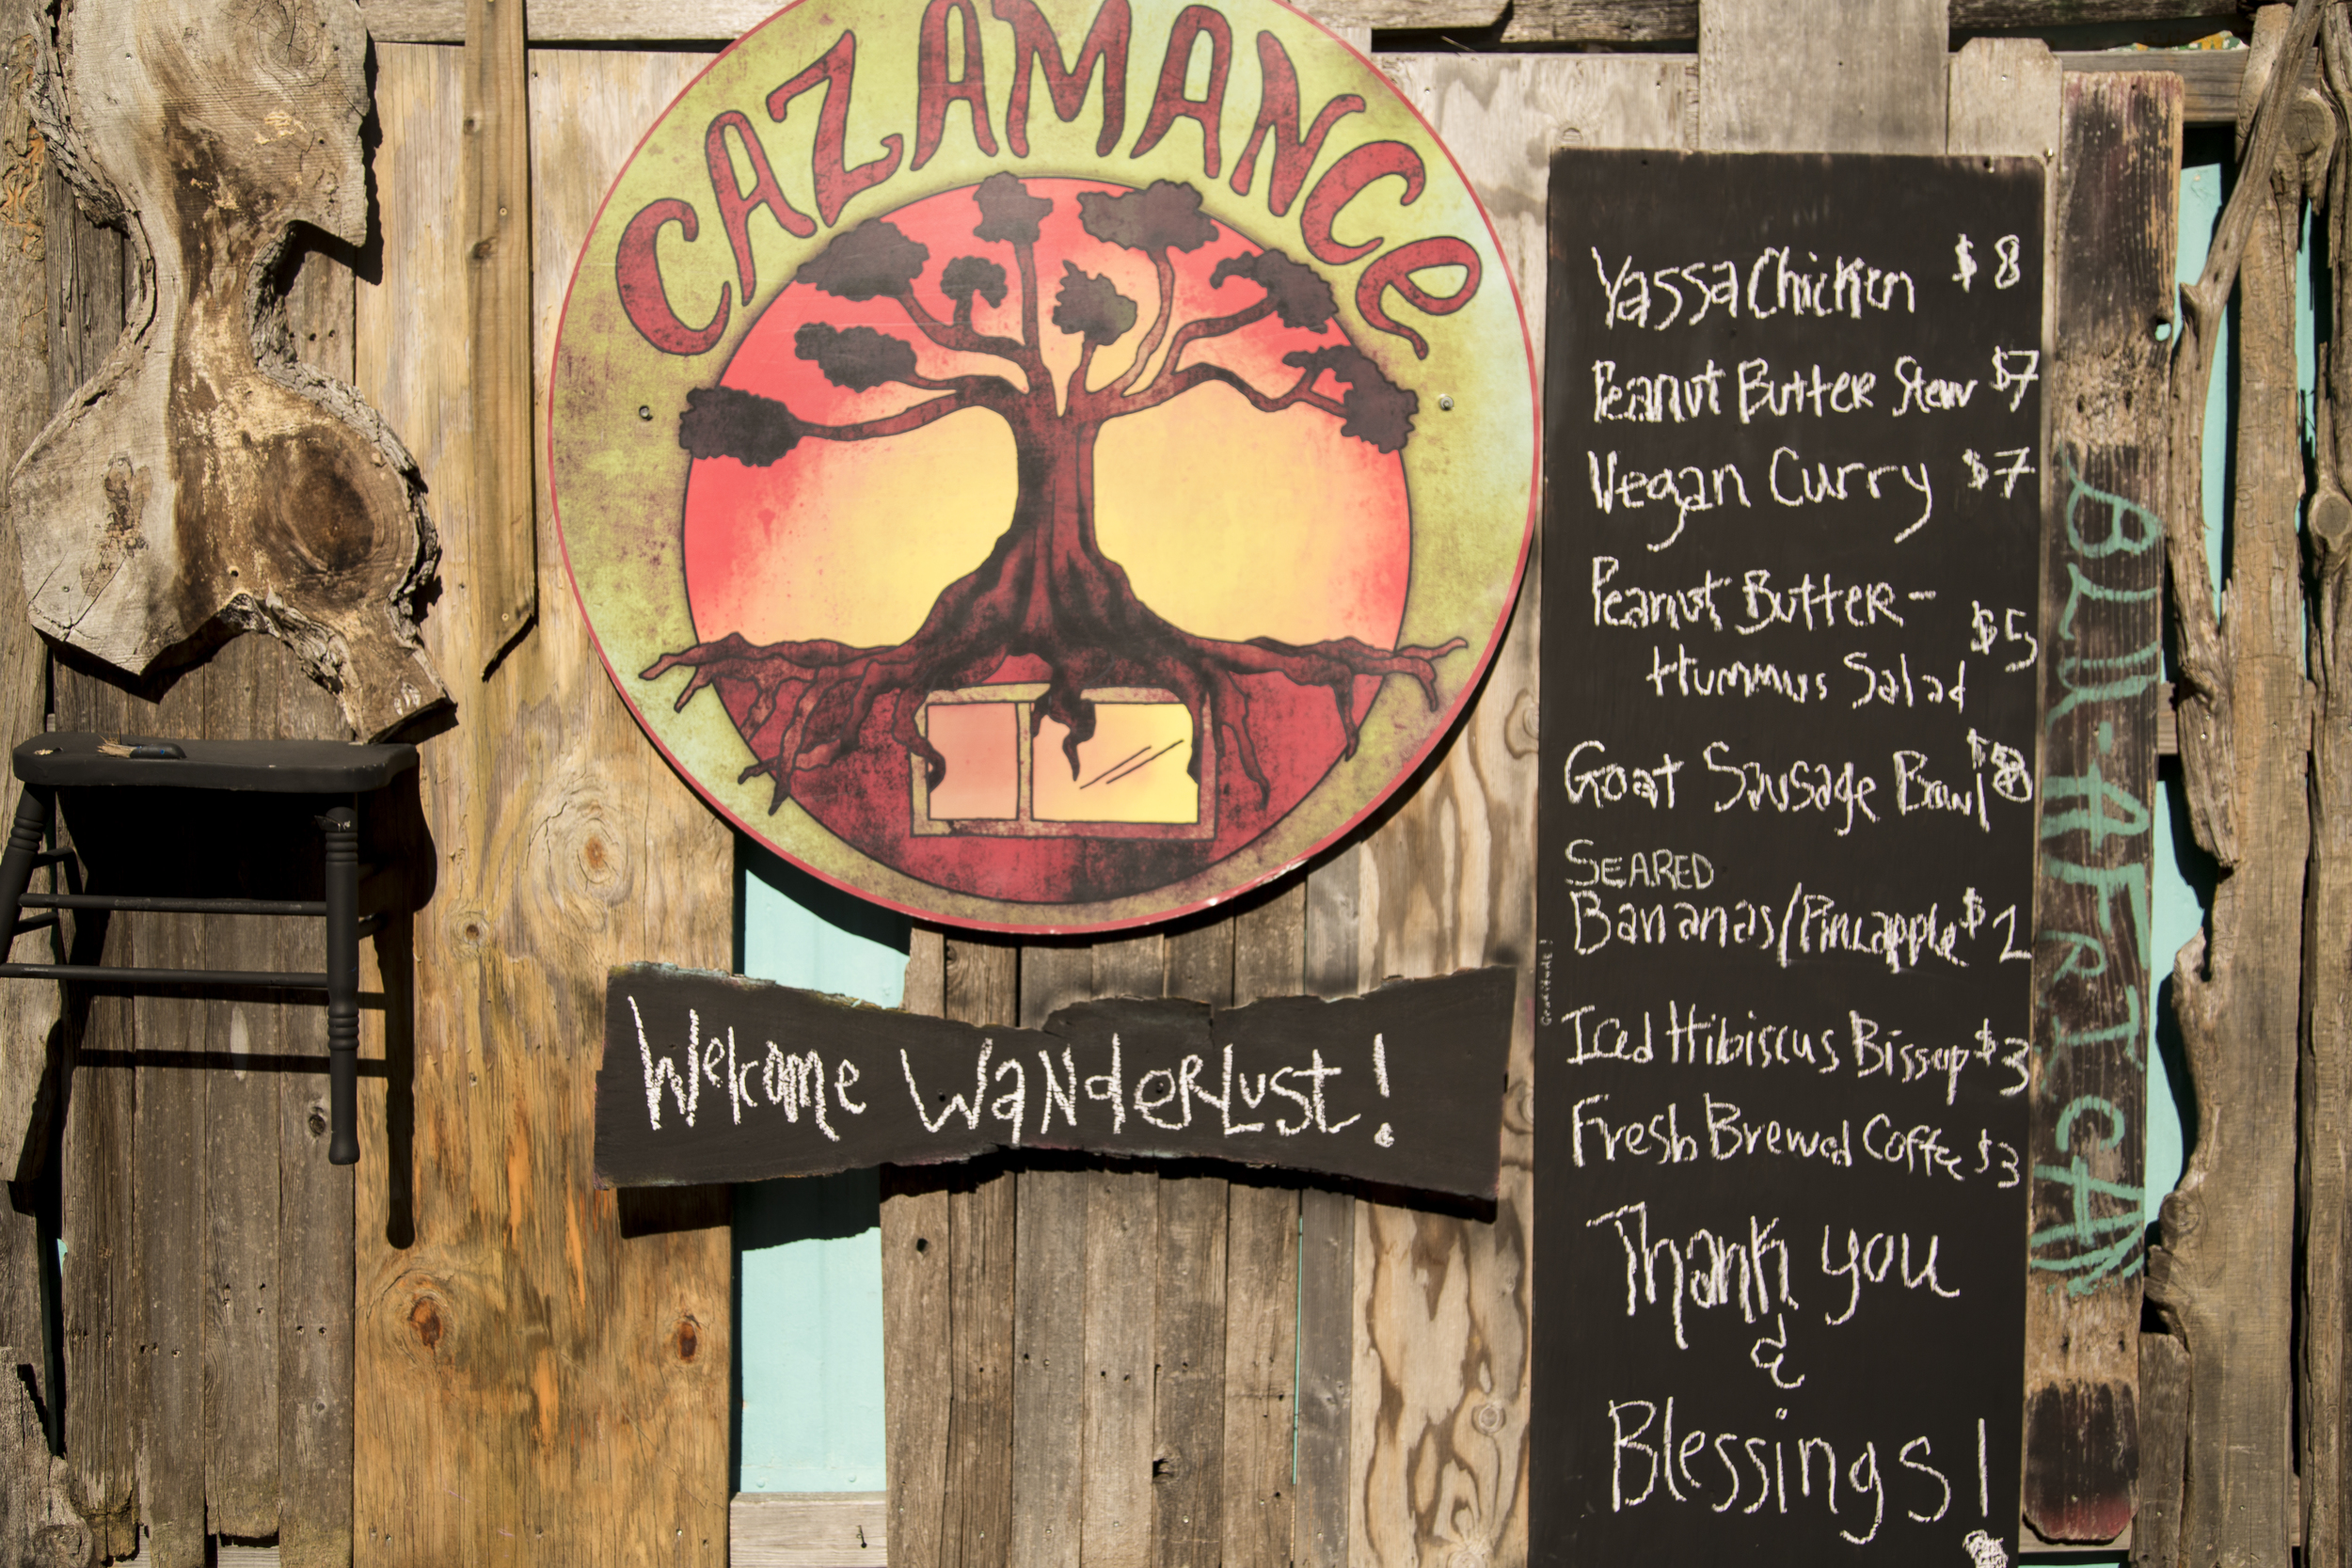 CAZAMANCe
Welcome WaNdeRLust!
Yassa Chicken $8
Peanut ButteR Stew $7
Vegan Curry $7
Peanut ButteR-
Hummus Salad $5
Goat Sausage Bowl $8
SEARED
Bananas/Pineapple $2
Iced Hibiscus Bissap $3
Fresh Brewed Coffee $3
Thank you
&
Blessings!
Gratitude!
BLU-AFRICA